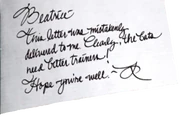 Beatrice—
This letter was mistakenly
delivered to me. Clearly, the bats
need better trainers!
Hope you're well. —